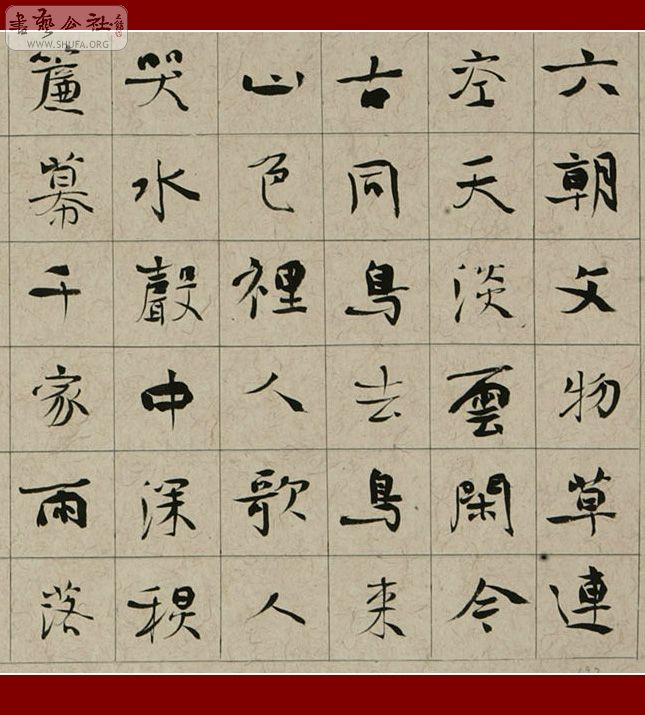 書藝公社
WWW.SHUFA.ORG
六朝文物草連
空天淡雲閑今
古同鳥去鳥來
山色裡人歌人
哭水聲中深秋
簾幕千家雨落